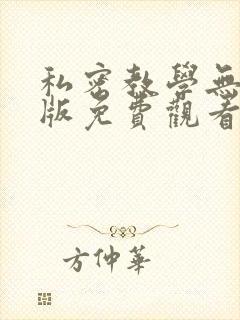 私密教學無
版免費觀看
方仲華